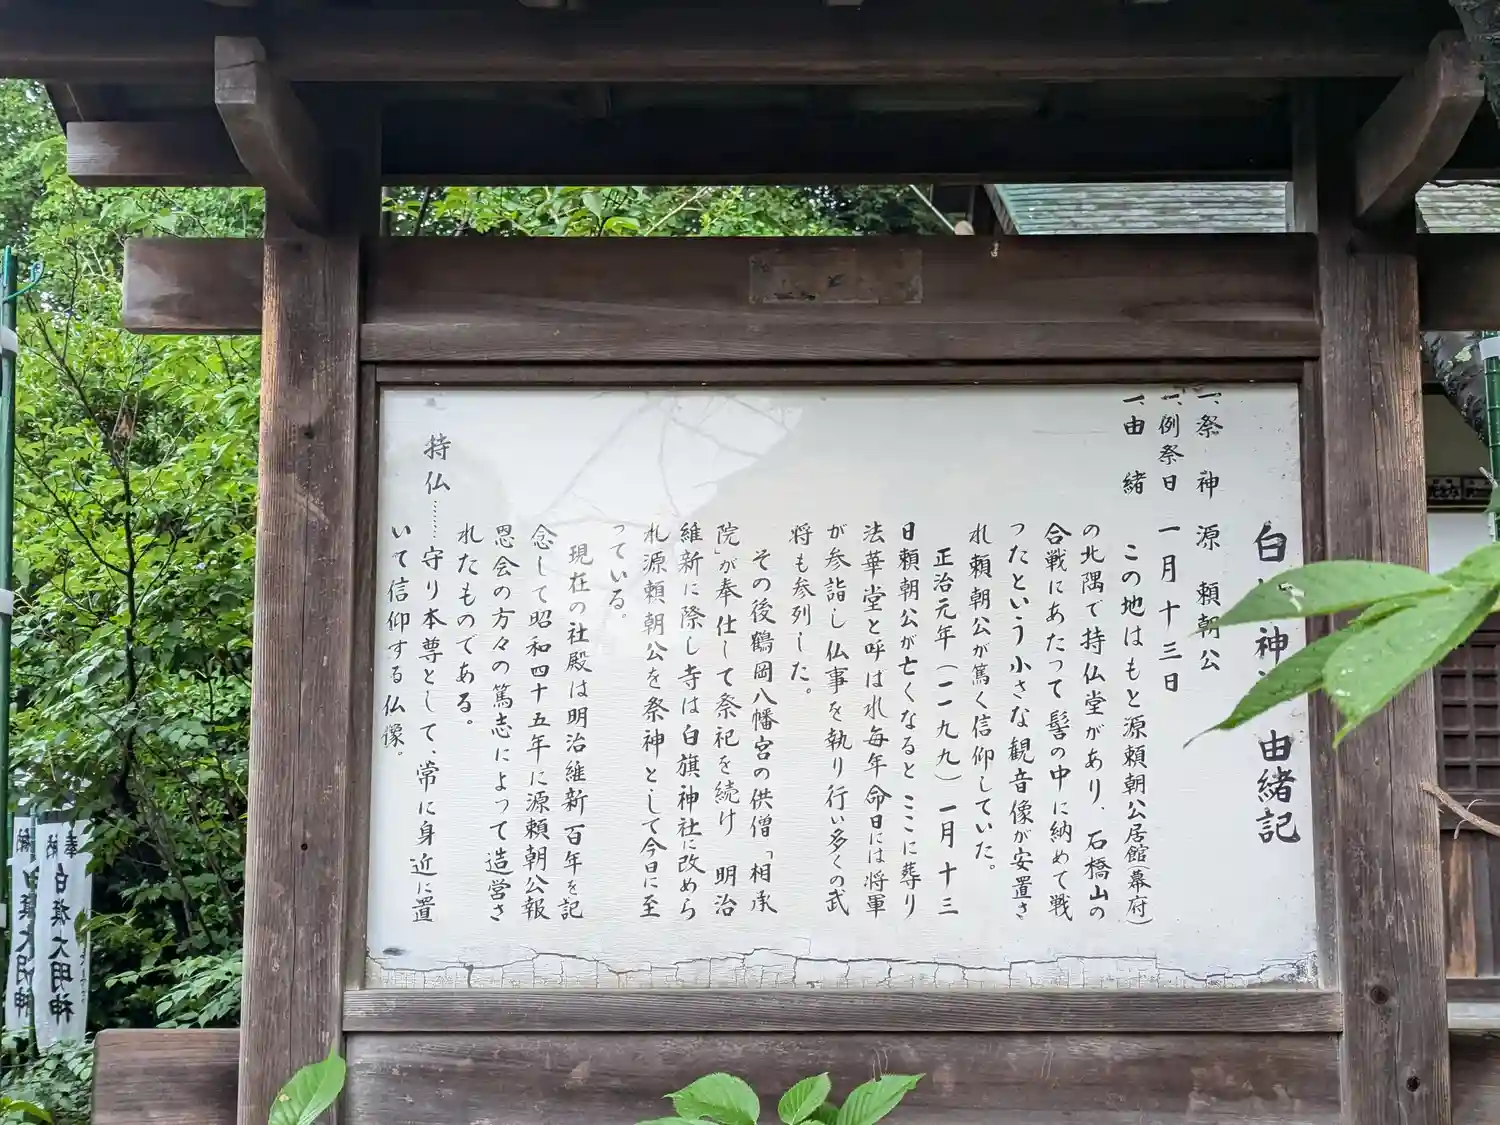 白 神 由緒記
一、祭神 源頼朝公
一、例祭日 一月十三日
一、由緒 この地はもと源頼朝公居館(幕府)
の北隅で持仏堂があり、石橋山の
合戦にあたって髻の中に納めて戦
ったという小さな観音像が安置さ
れ頼朝公が篤く信仰していた。
正治元年(一一九九)一月十三
日頼朝公が亡くなるとここに葬り
法華堂と呼ばれ毎年命日には将軍
が参詣し仏事を執り行い多くの武
将も参列した。
その後鶴岡八幡宮の供僧「相承
院」が奉仕して祭祀を続け 明治
維新に際し寺は白旗神社に改めら
れ源頼朝公を祭神として今日に至
っている。
現在の社殿は明治維新百年を記
念して昭和四十五年に源頼朝公報
恩会の方々の篤志によって造営さ
れたものである。
持仏……守り本尊として、常に身近に置
いて信仰する仏像。
奉納 白旗大明神
白旗大明神